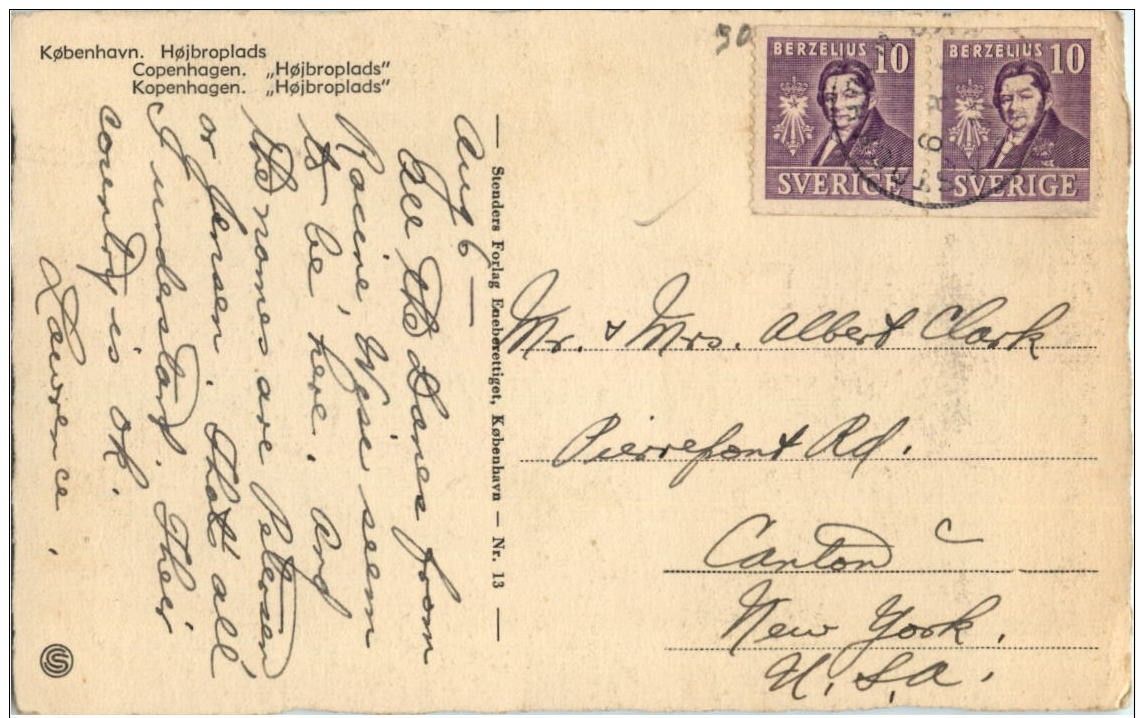 København. Højbroplads
Copenhagen. „Højbroplads”
Kopenhagen. „Højbroplads”
Aug 6 —
See the Danes from
Racine, Wise seem
to be here. and
the names are Petersen
or Jensen. That all
I understand. Their
country is ok.
Lawrence.
— Stenders Forlag Eneberettiget, København — Nr. 13 —
30
BERZELIUS 10
SVERIGE
BERZELIUS 10
SVERIGE
6 8
Mr. & Mrs. Albert Clark
Pierrepont Rd.
Canton
New York.
U.S.A.
S